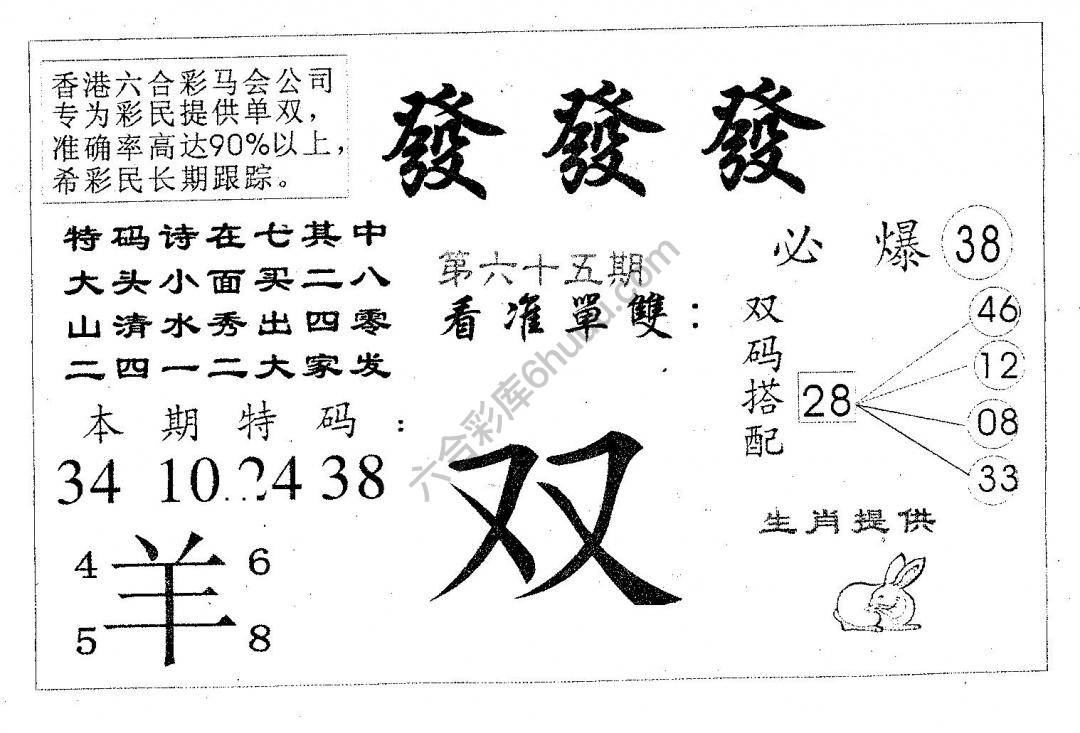 香港六合彩马会公司
专为彩民提供单双，
准确率高达90%以上，
希彩民长期跟踪。
發 發 發
特码诗在七其中
大头小面买二八
山清水秀出四零
二四一二大家发
第六十五期
看准單雙：
必爆 38
双码搭配
28
46
12
08
33
本期特码：
34 10.24 38
双
4 羊 6
5 8
生肖提供
六合彩库6huku.com